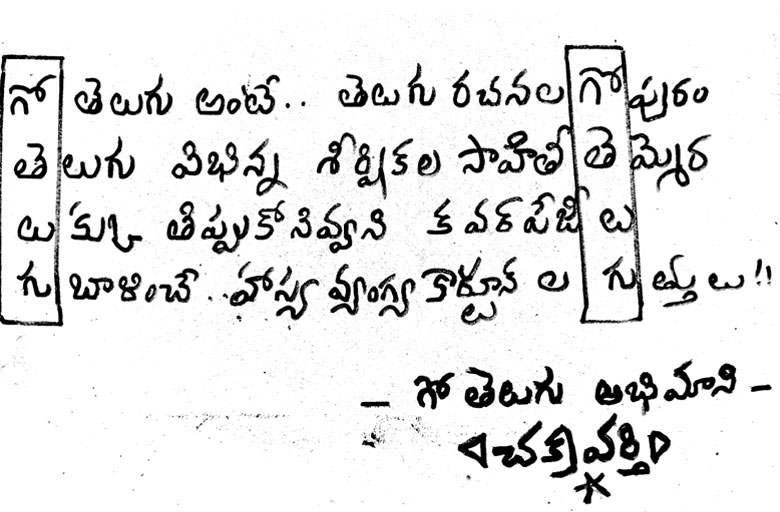 గో తెలుగు అంటే.. తెలుగు రచనల గోపురం
తెలుగు విభిన్న శీర్షికల సాహితీ తెమ్మెర
లుకు్క తిప్పుకోనివ్వని కవర్ పేజీలు
గుబాళించే.. హాస్య వ్యంగ్య కార్టూన్ ల గుత్తులు!!
- గో తెలుగు అభిమాని -
చక్రవర్తి